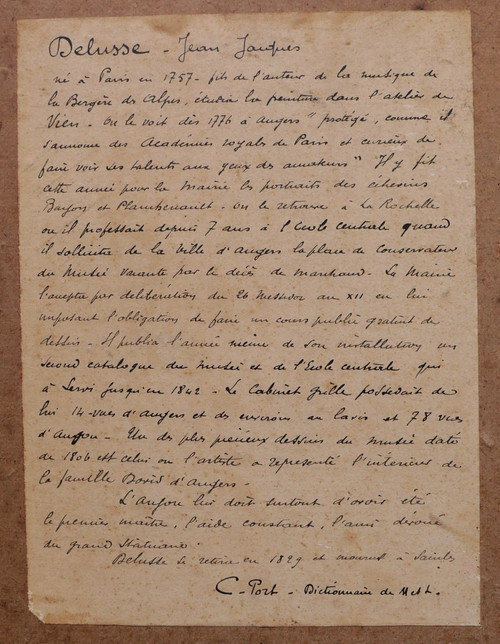 Delusse - Jean Jacques
né à Paris en 1757 - fils de l'auteur de la musique de
la Bergère des Alpes, étudia la peinture dans l'atelier de
Vien - On le voit dès 1776 à Angers "protégé, comme il
s'annonce des Académies royales de Paris et curieux de
faire voir ses talents aux yeux des amateurs" Il y fit
cette année pour la Mairie les portraits des échevins
et Planchenault - on le retrouve à La Rochelle
où il professait depuis 7 ans à l'Ecole centrale quand
il sollicita de la Ville d'Angers la place de Conservateur
du Musée vacante par le décès de Marchand - La Mairie
l'accepta par délibération du 26 Messidor an XII en lui
imposant l'obligation de faire un cours public gratuit de
dessin - Il publia l'année même de son installation un
second catalogue du Musée et de l'Ecole centrale qui
a servi jusqu'en 1842 - Le Cabinet Grille possédait de
lui 14 vues d'Angers et des environs au lavis et 78 vues
d'Anjou - Un des plus précieux dessins du Musée daté
de 1806 est celui où l'artiste a représenté l'intérieur de
la famille David d'Angers -
L'Anjou lui doit surtout d'avoir été
le premier maître, l'aide constant, l'ami dévoué
du grand Statuaire.
Delusse se retire en 1829 et mourut à Saintes
C. Port - Dictionnaire de M et L.